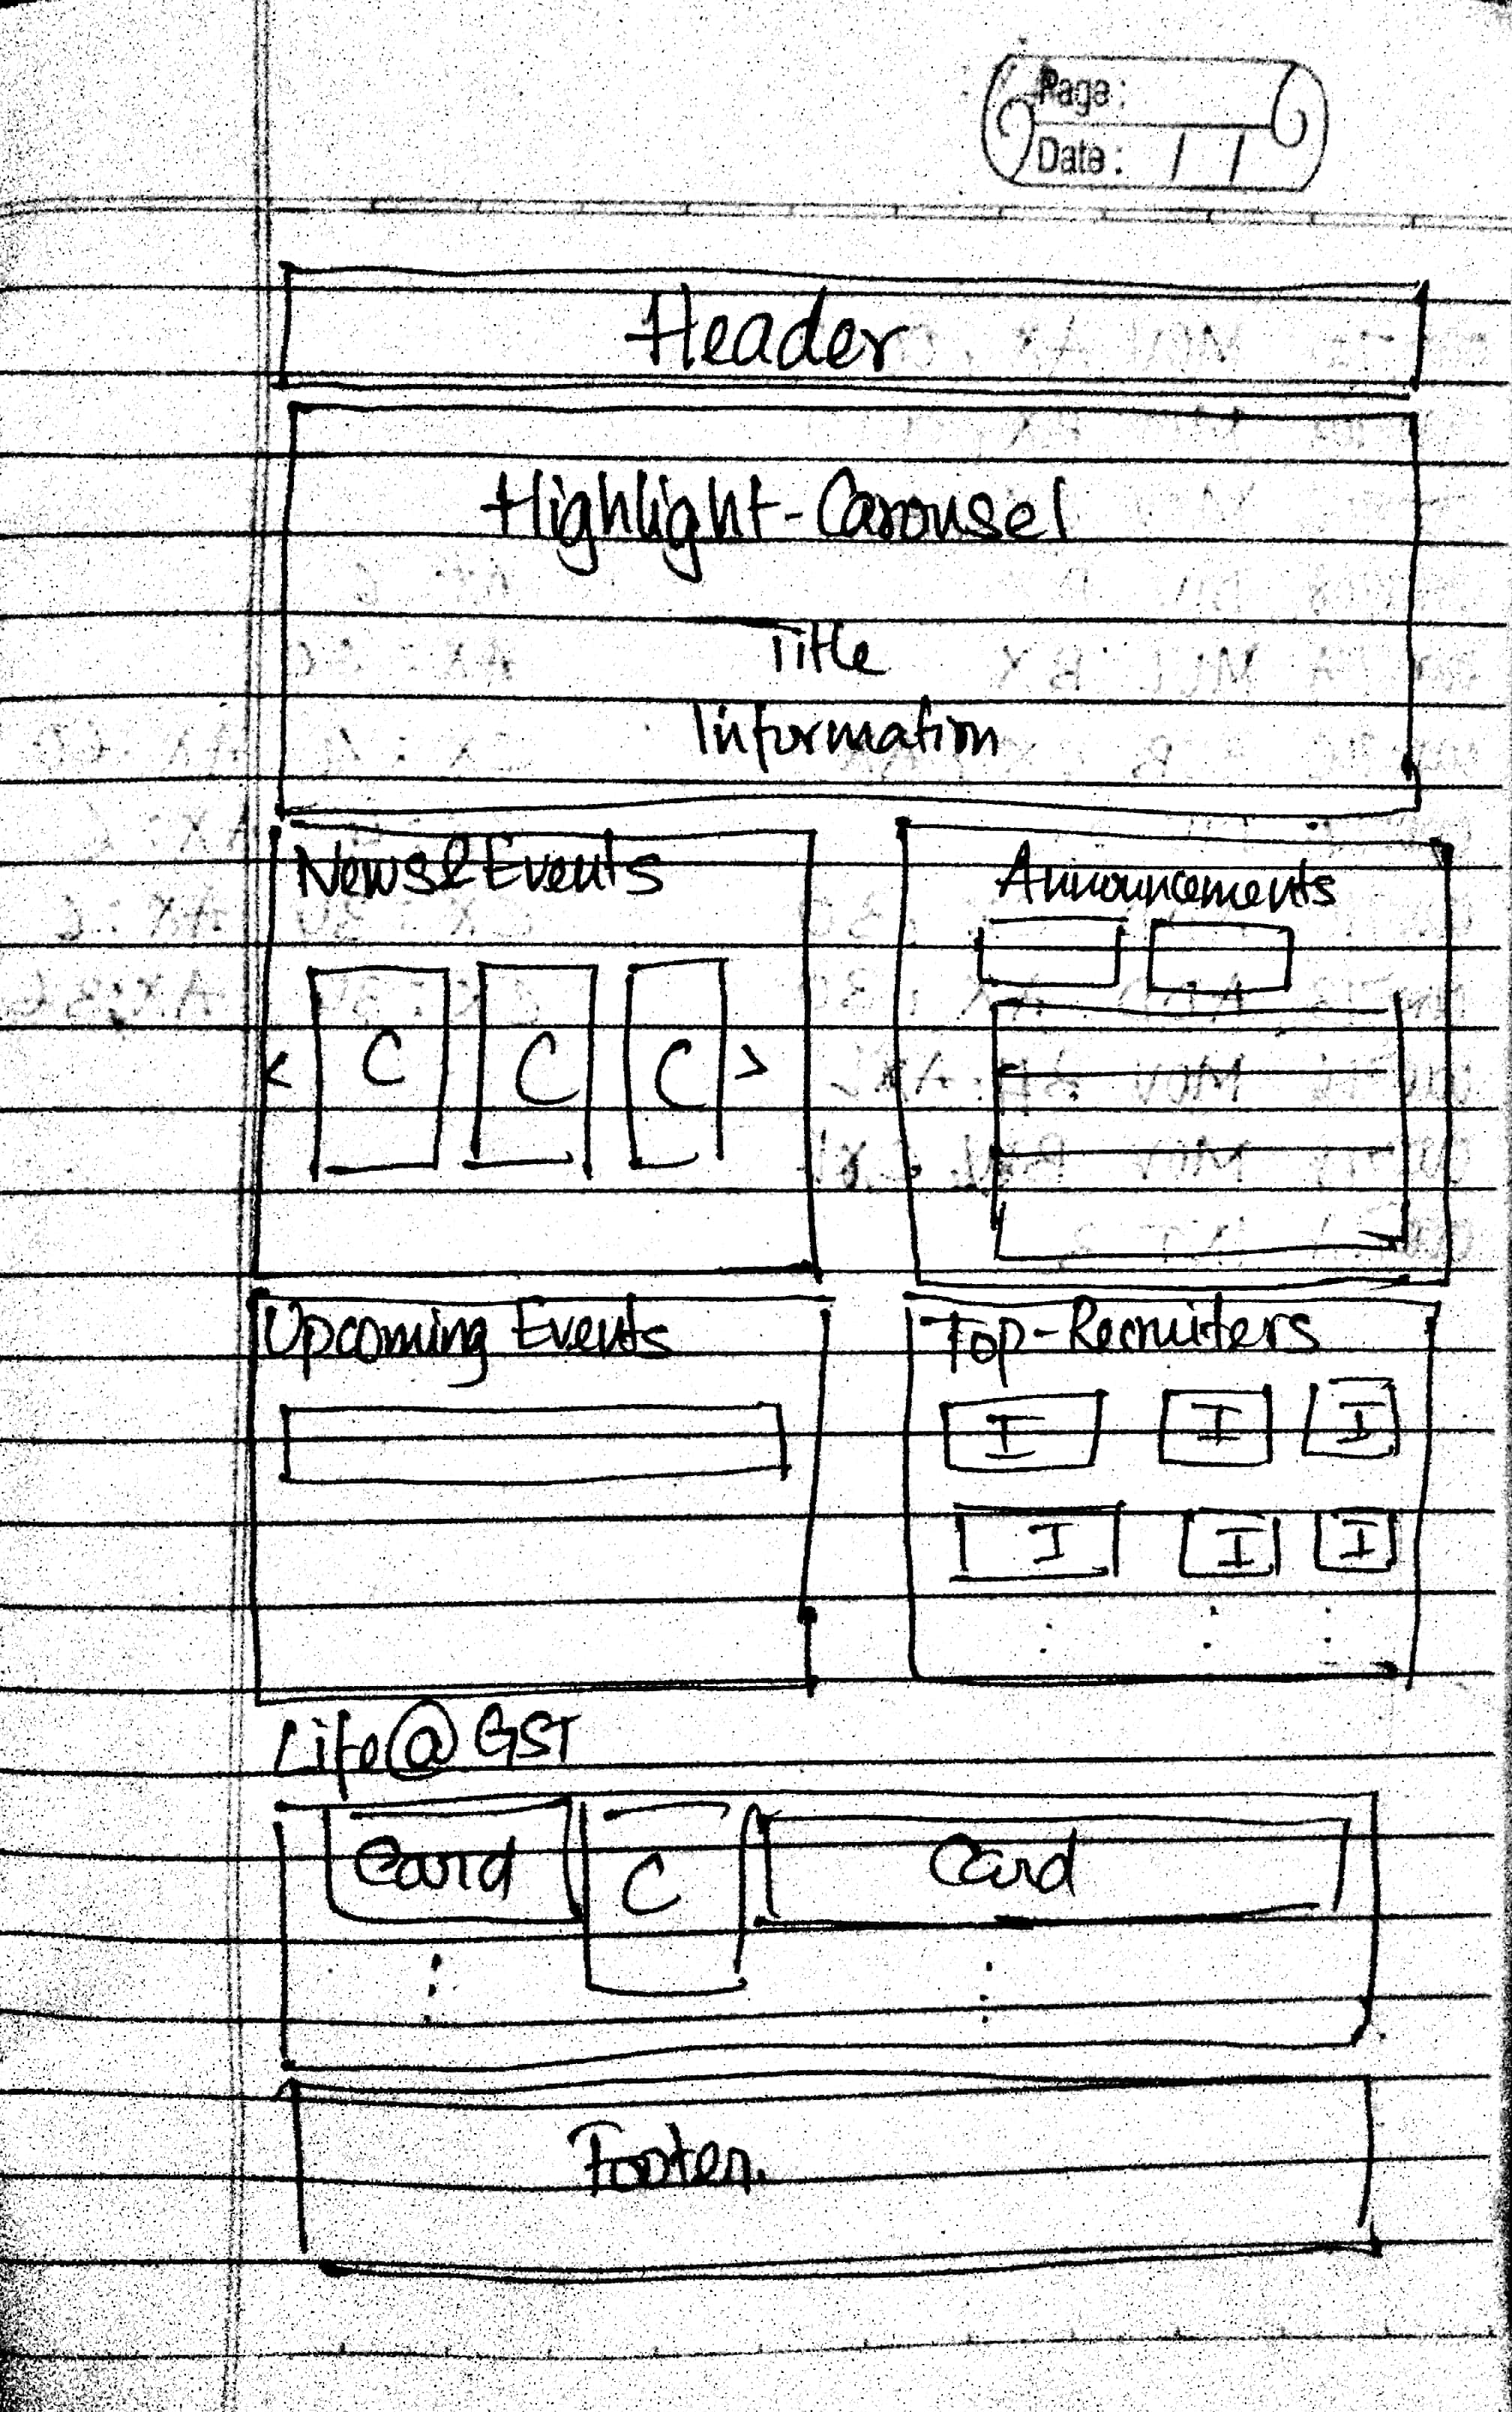 Page:
Date: / /
Header
Highlight-Carousel
Title
Information
News&Events
Announcements
< C C C >
Upcoming Events
Top-Recruiters
I I I
I I I
Life@GST
Card C Card
Footer.